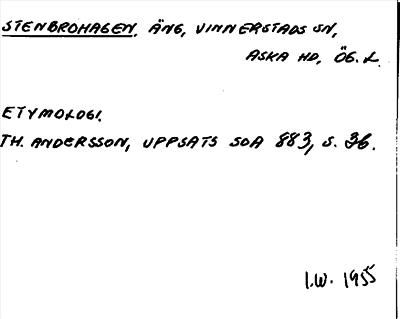 STENBROHAGEN, ÄNG, VINNERSTADS SN,
ASKA HD, ÖG. L.
ETYMOLOGI.
TH. ANDERSSON, UPPSATS SOA 883, S. 36.
I.W. 1955